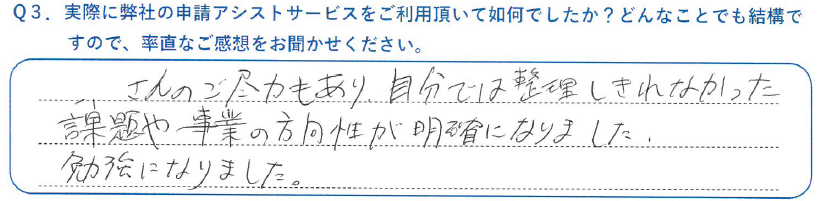 Q3. 実際に弊社の申請アシストサービスをご利用頂いて如何でしたか？どんなことでも結構で
すので、率直なご感想をお聞かせください。
さんのご尽力もあり、自分では整理しきれなかった
課題や事業の方向性が明確になりました。
勉強になりました。